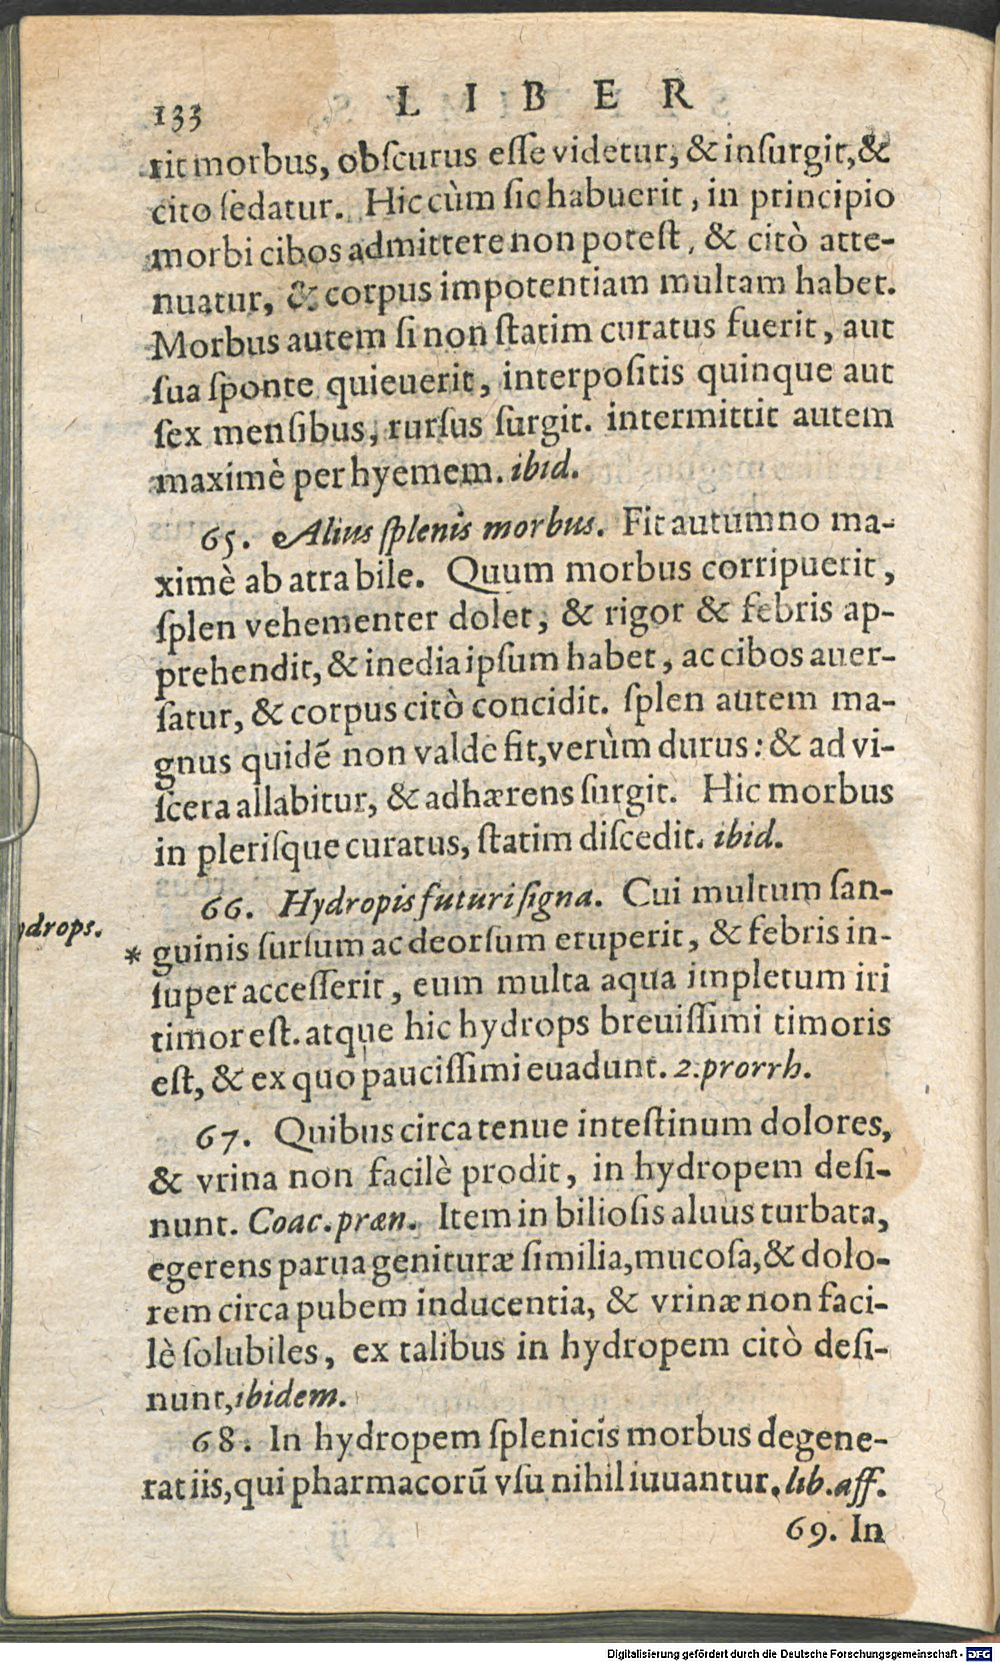 133 LIBER
rit morbus, obſcurus eſſe videtur, & inſurgit, &
cito ſedatur. Hic cùm ſic habuerit, in principio
morbi cibos admittere non poteſt, & citò atte-
nuatur, & corpus impotentiam multam habet.
Morbus autem ſi non ſtatim curatus fuerit, aut
ſua ſponte quieuerit, interpoſitis quinque aut
ſex menſibus, rurſus ſurgit. intermittit autem
maximè per hyemem. ibid.
65. Alius ſplenis morbus. Fit autumno ma-
ximè ab atra bile. Quum morbus corripuerit,
ſplen vehementer dolet, & rigor & febris ap-
prehendit, & inedia ipſum habet, ac cibos auer-
ſatur, & corpus citò concidit. ſplen autem ma-
gnus quidē non valde fit, verùm durus: & ad vi-
ſcera allabitur, & adhærens ſurgit. Hic morbus
in pleriſque curatus, ſtatim diſcedit. ibid.
66. Hydropis futuri ſigna. Cui multum ſan-
ydrops.
* guinis ſurſum ac deorſum eruperit, & febris in-
ſuper acceſſerit, eum multa aqua impletum iri
timor eſt. atque hic hydrops breuiſſimi timoris
eſt, & ex quo pauciſſimi euadunt. 2. prorrh.
67. Quibus circa tenue inteſtinum dolores,
& vrina non facilè prodit, in hydropem deſi-
nunt. Coac. præn. Item in bilioſis aluus turbata,
egerens parua genituræ ſimilia, mucoſa, & dolo-
rem circa pubem inducentia, & vrinæ non faci-
lè ſolubiles, ex talibus in hydropem citò deſi-
nunt, ibidem.
68. In hydropem ſplenicis morbus degene-
rat iis, qui pharmacorū vſu nihil iuuantur. lib. aff.
69. In
Digitalisierung gefördert durch die Deutsche Forschungsgemeinschaft - DFG